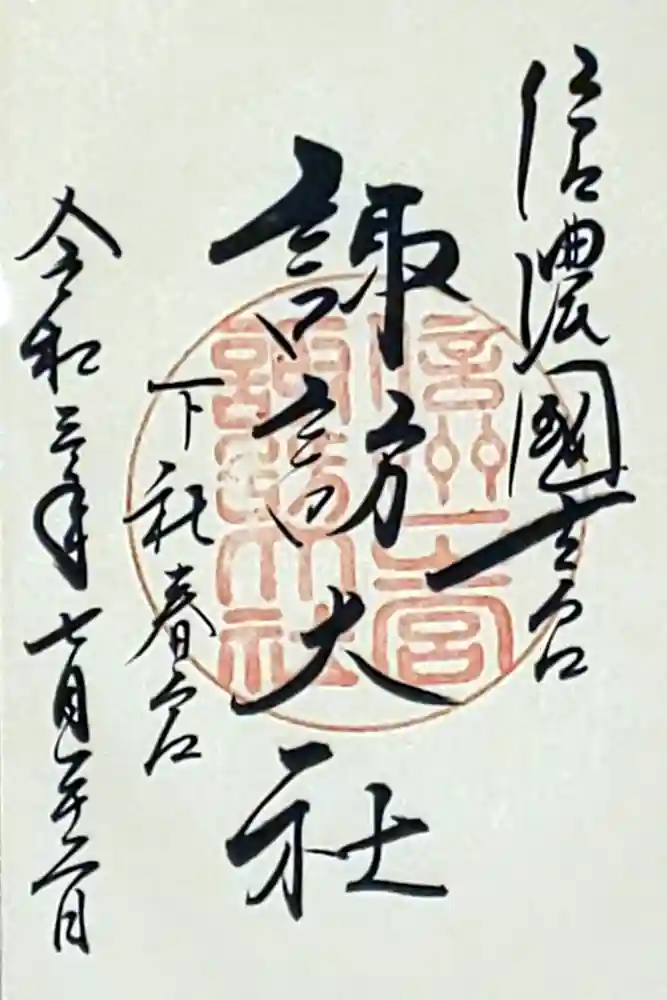 信濃國一之宮
諏訪大社
下社春宮
令和三年七月二十二日
信州一宮
諏訪大社